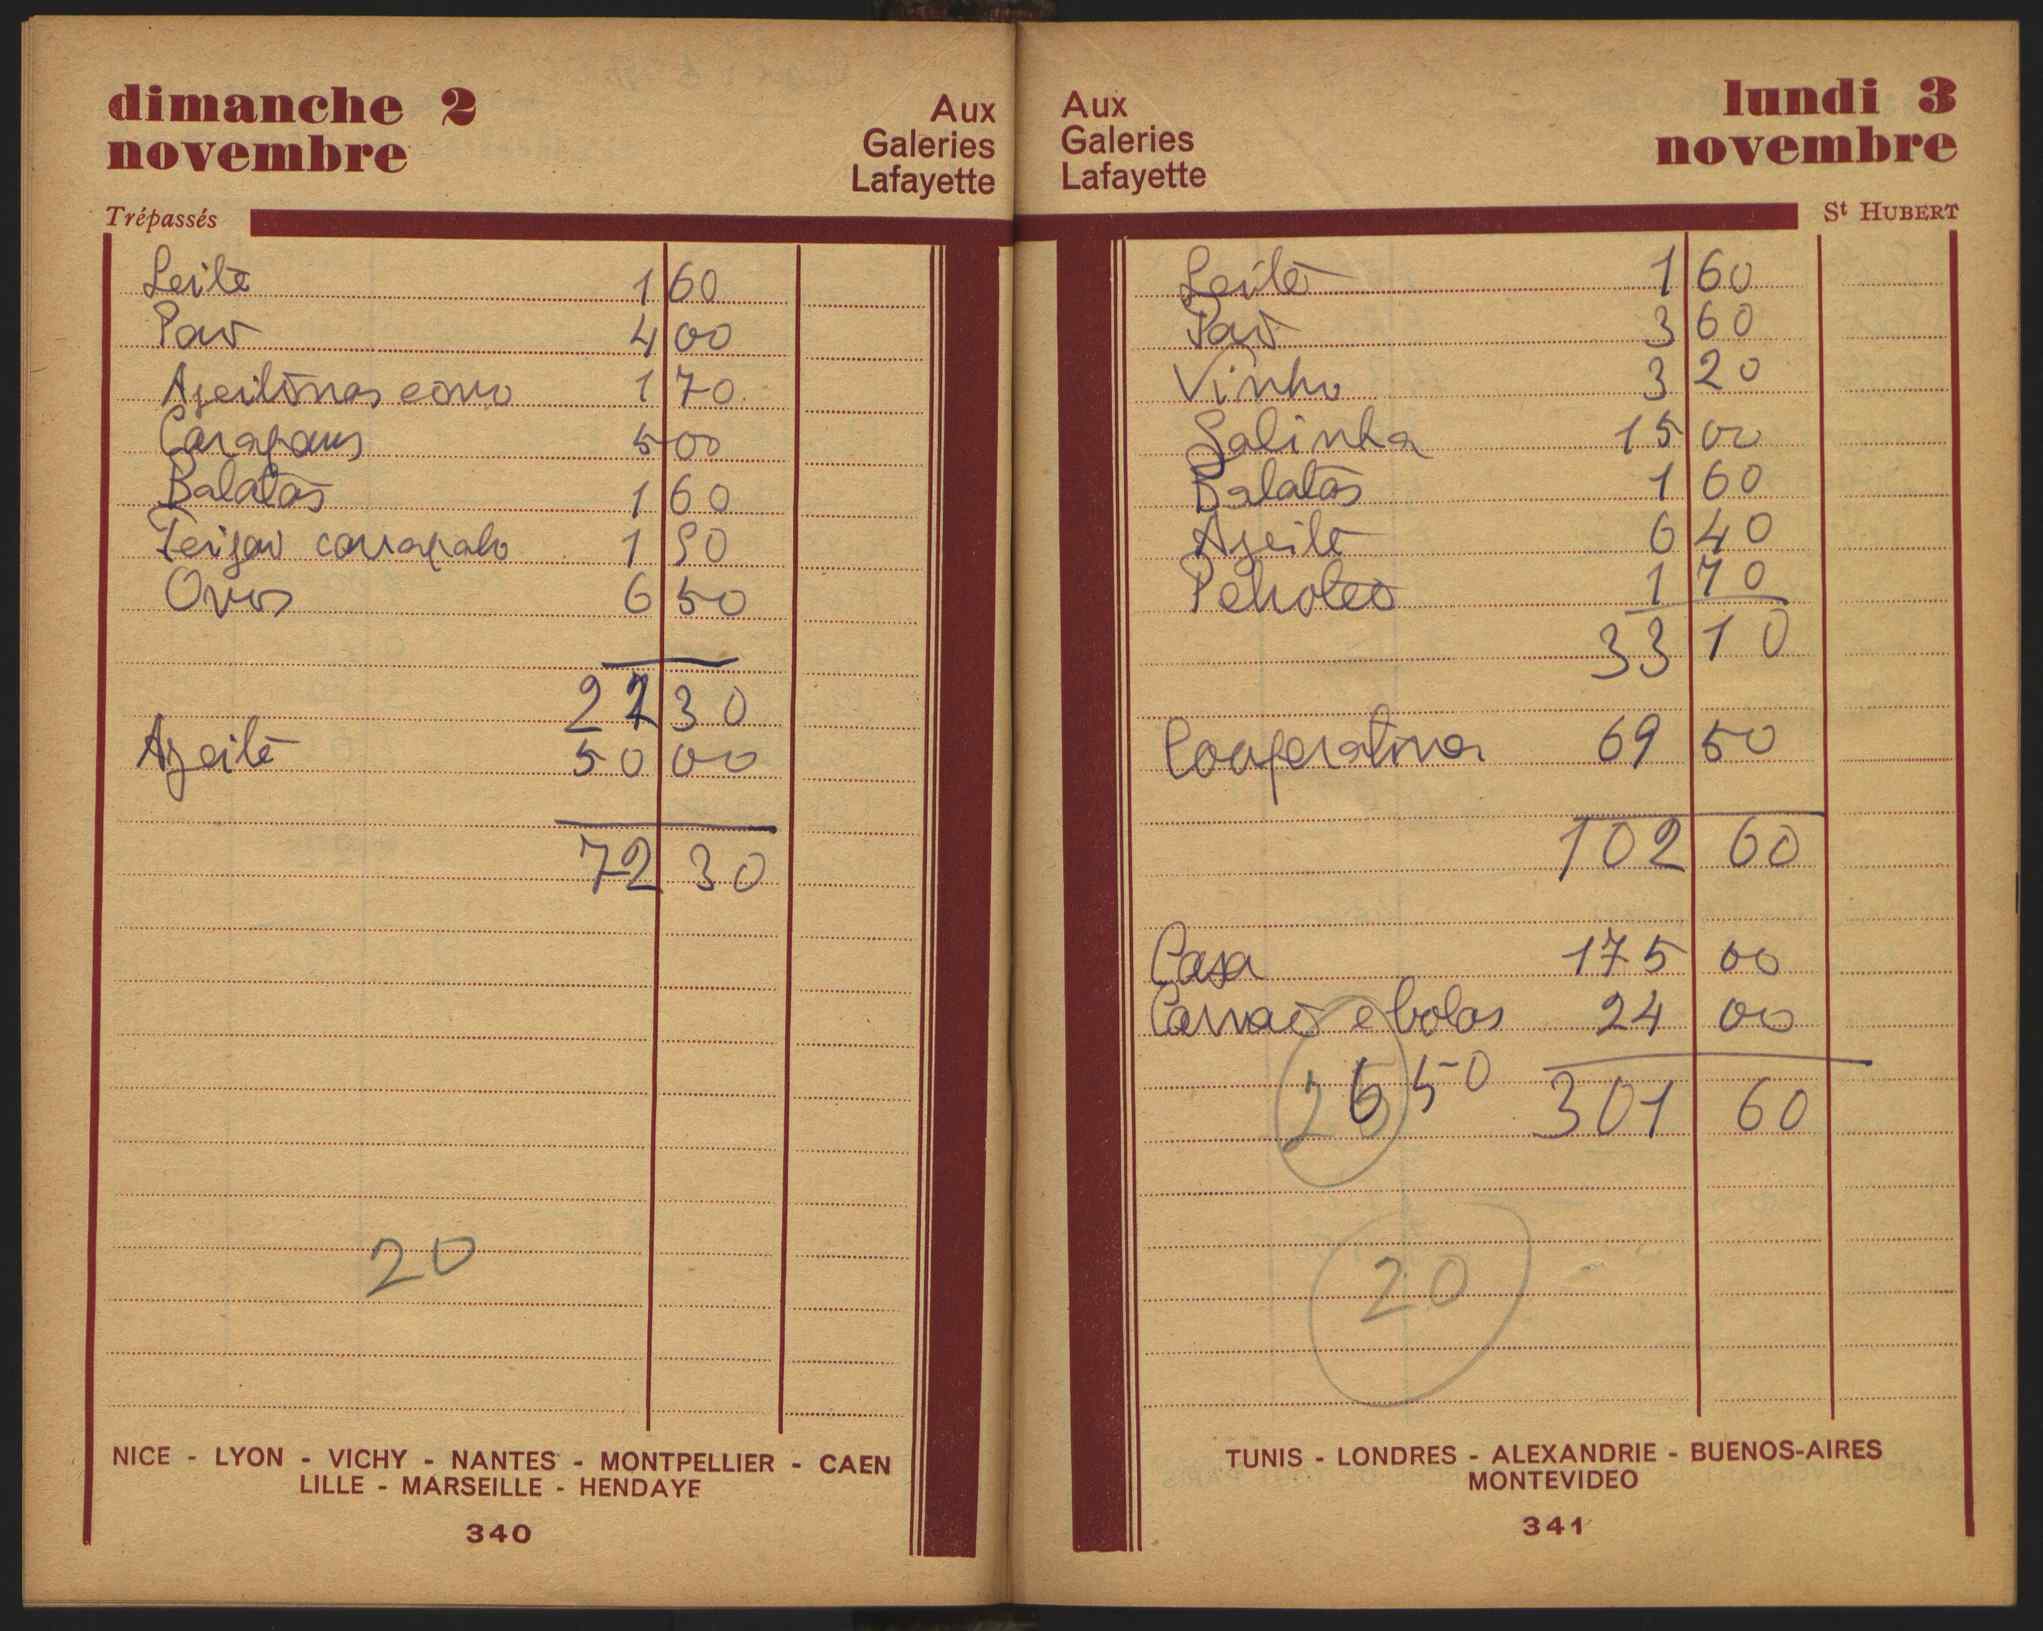 dimanche 2
novembre
Aux
Galeries
Lafayette
Trépassés
Leite 1 60
Pão 4 00
Azeitonas 1 70
Carapaus 5 00
Batatas 1 60
Feijão carrapato 1 90
Ovos 6 50
22 30
Azeite 50 00
72 30
20
NICE - LYON - VICHY - NANTES - MONTPELLIER - CAEN
LILLE - MARSEILLE - HENDAYE
340
Aux
Galeries
Lafayette
lundi 3
novembre
St HUBERT
Leite 1 60
Pão 3 60
Vinho 3 20
Galinha 15 00
Batatas 1 60
Azeite 6 40
Petroleo 1 70
33 10
Cooperativa 69 50
102 60
Casa 175 00
Carvão e bolas 24 00
50 301 60
20
TUNIS - LONDRES - ALEXANDRIE - BUENOS-AIRES
MONTEVIDEO
341